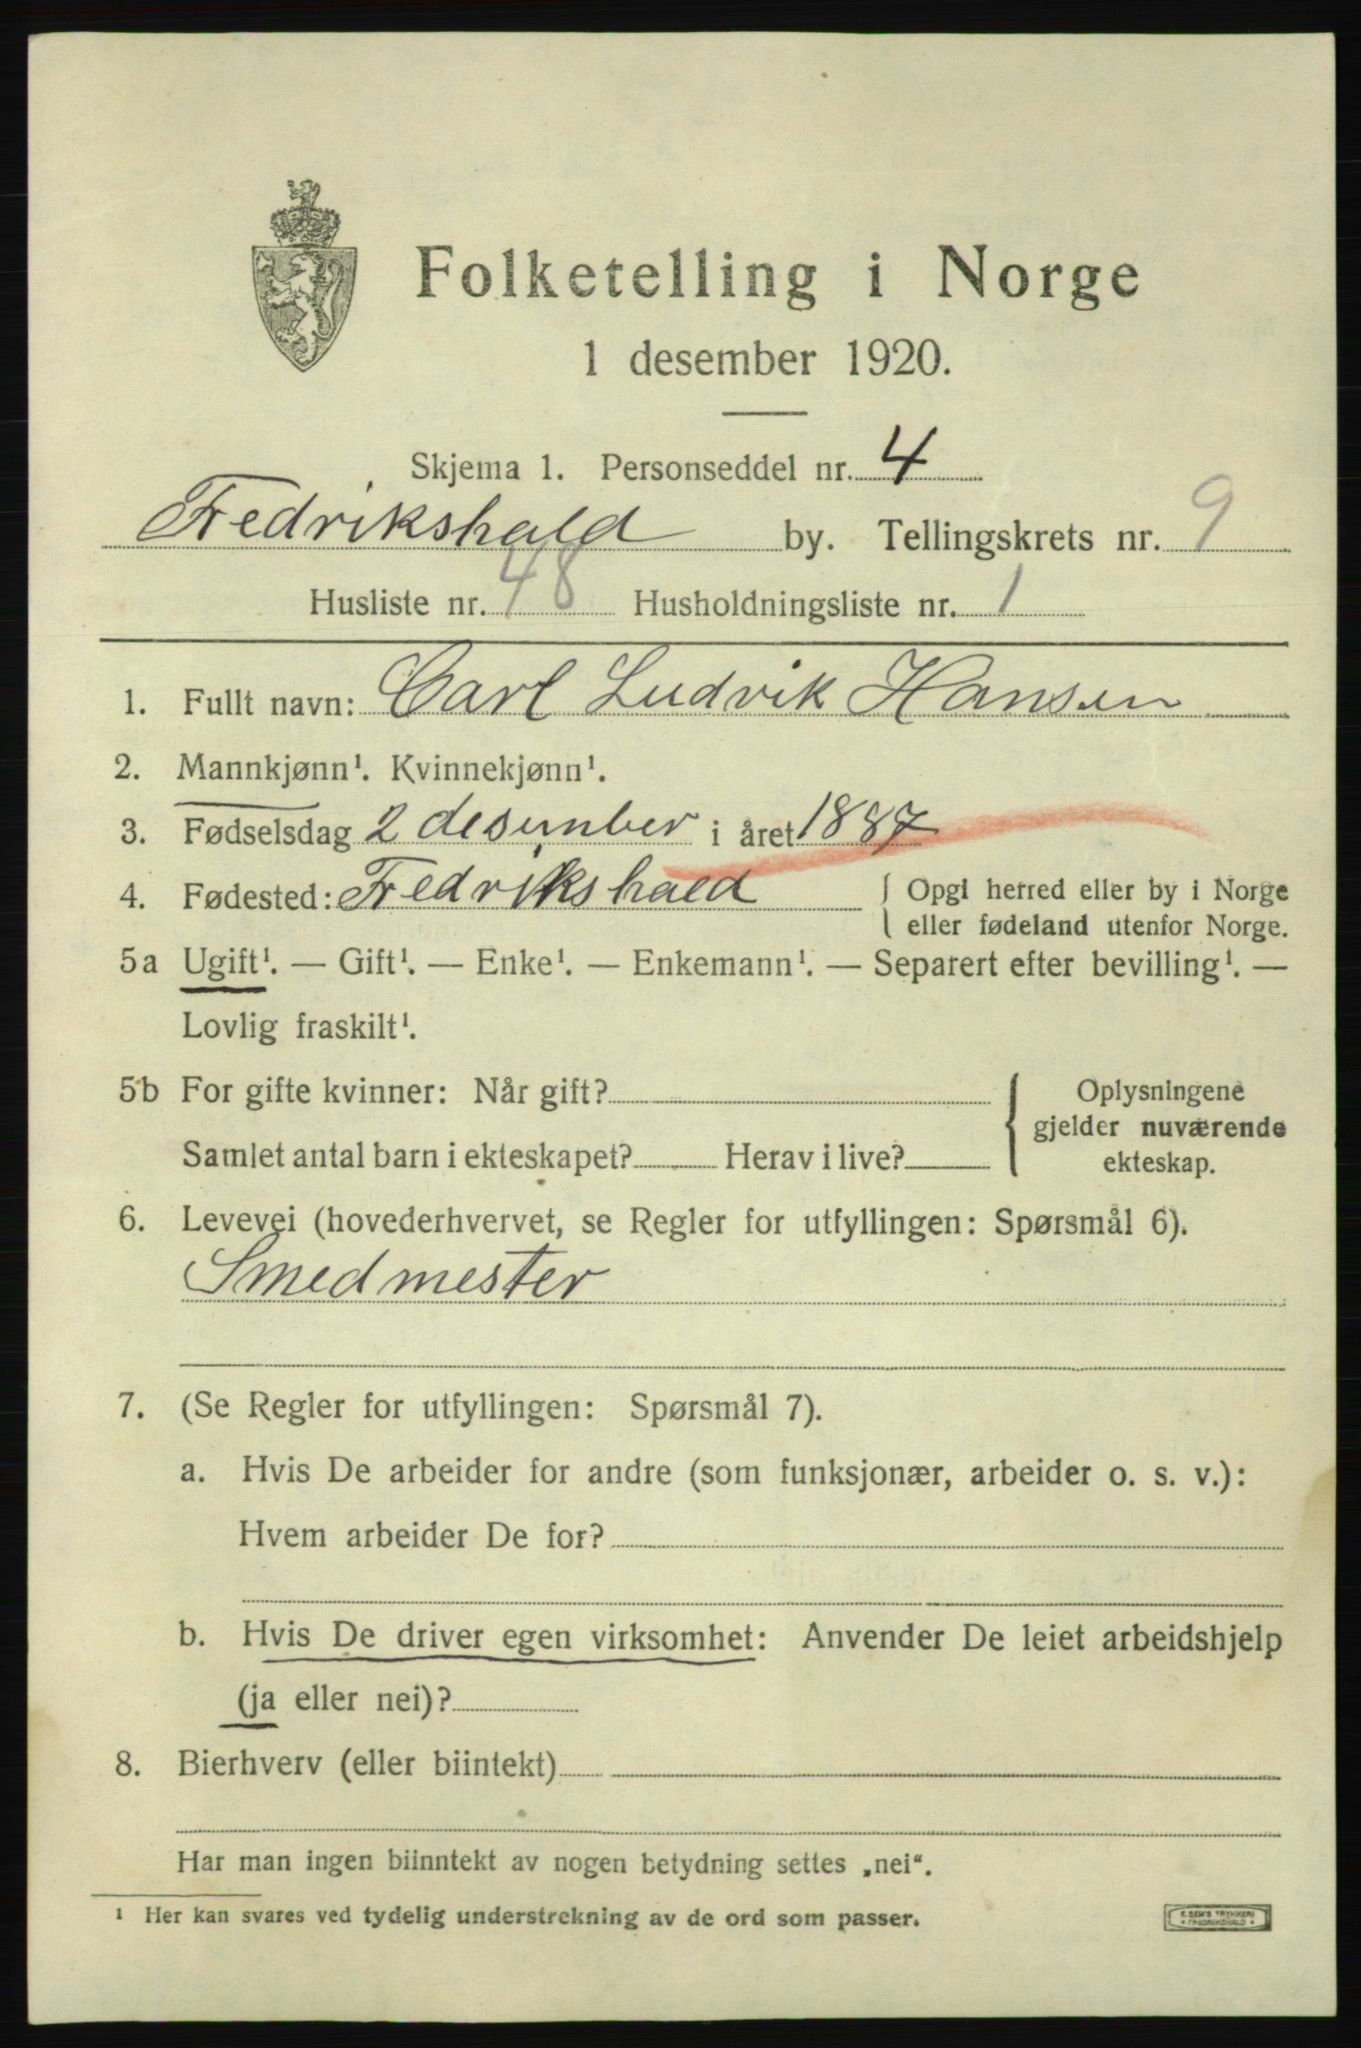 Folketelling i Norge
1 desember 1920.
Skjema 1. Personseddel nr. 4
Fredrikshald by. Tellingskrets nr. 9
Husliste nr. 48 Husholdningsliste nr. 1
1. Fullt navn: Carl Ludvik Hansen
2. Mannkjønn¹. Kvinnekjønn¹.
3. Fødselsdag 2 desember i året 1887
4. Fødested: Fredrikshald { Opgi herred eller by i Norge
eller fødeland utenfor Norge.
5a Ugift¹. — Gift¹. — Enke¹. — Enkemann¹. — Separert efter bevilling¹. —
Lovlig fraskilt¹.
5b For gifte kvinner: Når gift? { Oplysningene
gjelder nuværende
Samlet antal barn i ekteskapet? Herav i live? ekteskap.
6. Levevei (hovederhvervet, se Regler for utfyllingen: Spørsmål 6).
Smedmester
7. (Se Regler for utfyllingen: Spørsmål 7).
a. Hvis De arbeider for andre (som funksjonær, arbeider o. s. v.):
Hvem arbeider De for?
b. Hvis De driver egen virksomhet: Anvender De leiet arbeidshjelp
(ja eller nei)?
8. Bierhverv (eller biintekt)
Har man ingen biinntekt av nogen betydning settes „nei“.
¹ Her kan svares ved tydelig understrekning av de ord som passer.
TRYKKERI
• FREDRIKSHALD •